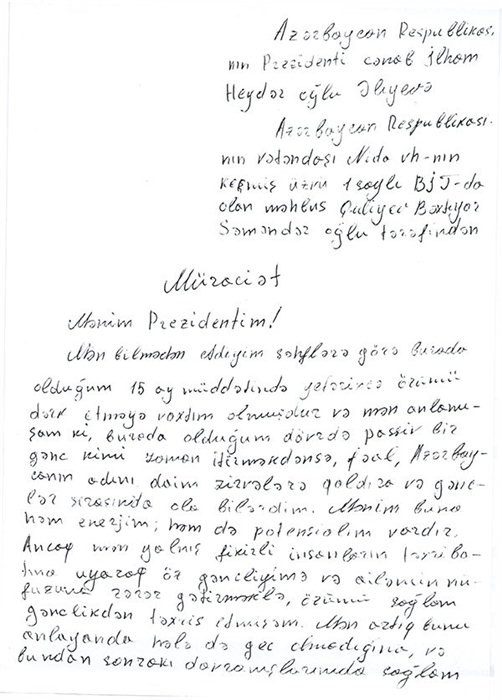 Azərbaycan Respublikası
nın Prezidenti cənab İlham
Heydər oğlu Əliyevə
Azərbaycan Respublikası-
nın vətəndaşı Nida vh-nın
keçmiş üzvü 1 saylı BİT-də
olan məhbus Quliyev Bəxtiyar
Səməndər oğlu tərəfindən
Müraciət
Mənim Prezidentim!
Mən bilmədən etdiyim səhflərə görə burada
olduğum 15 ay müddətində yetərincə özümü
dərk etməyə vaxtım olmuşdur və mən anlamı-
şam ki, burada olduğum dövrdə passiv bir
gənc kimi zaman itirməkdənsə, fəal, Azərbay-
canın adını daim zirvələrə qaldıra və gənc-
lər sırasında ola bilərdim. Mənim buna
həm enerjim, həm də potensialım vardır.
Ancaq mən yalnış fikirli insanların təxriba-
tına uyaraq öz gəncliyimə və ailəmin nü-
fuzuna zərər gətirməklə, özümü sağlam
gənclikdən təxris etmişəm. Mən artıq bunu
anlayanda hələ də gec olmadığına, və
bundan sonrakı davranışlarımda sağlam